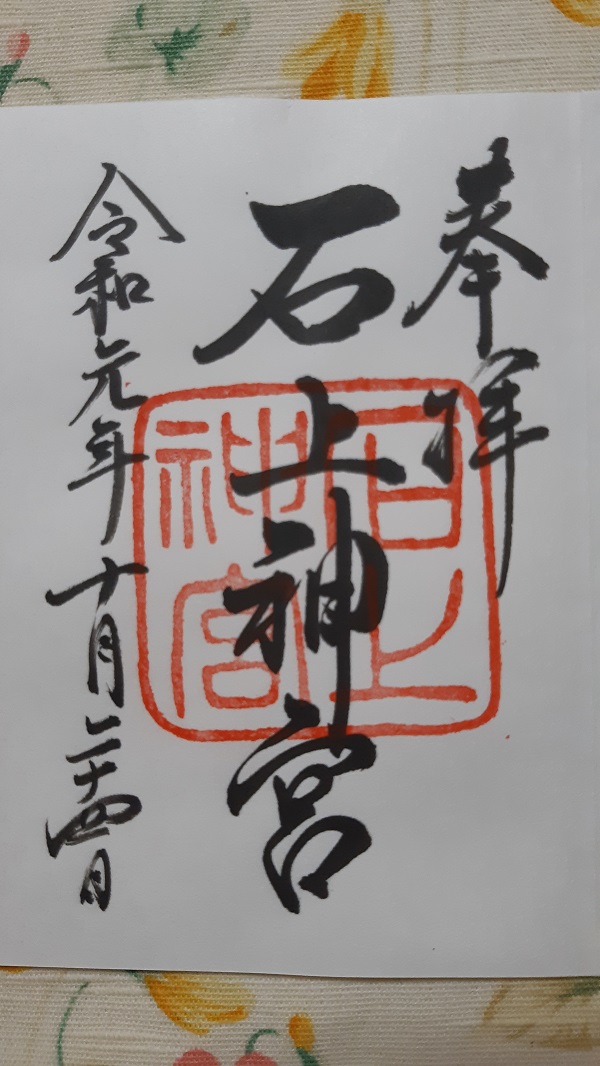 奉拝
石上神宮
令和元年十月二十四日
石上神宮